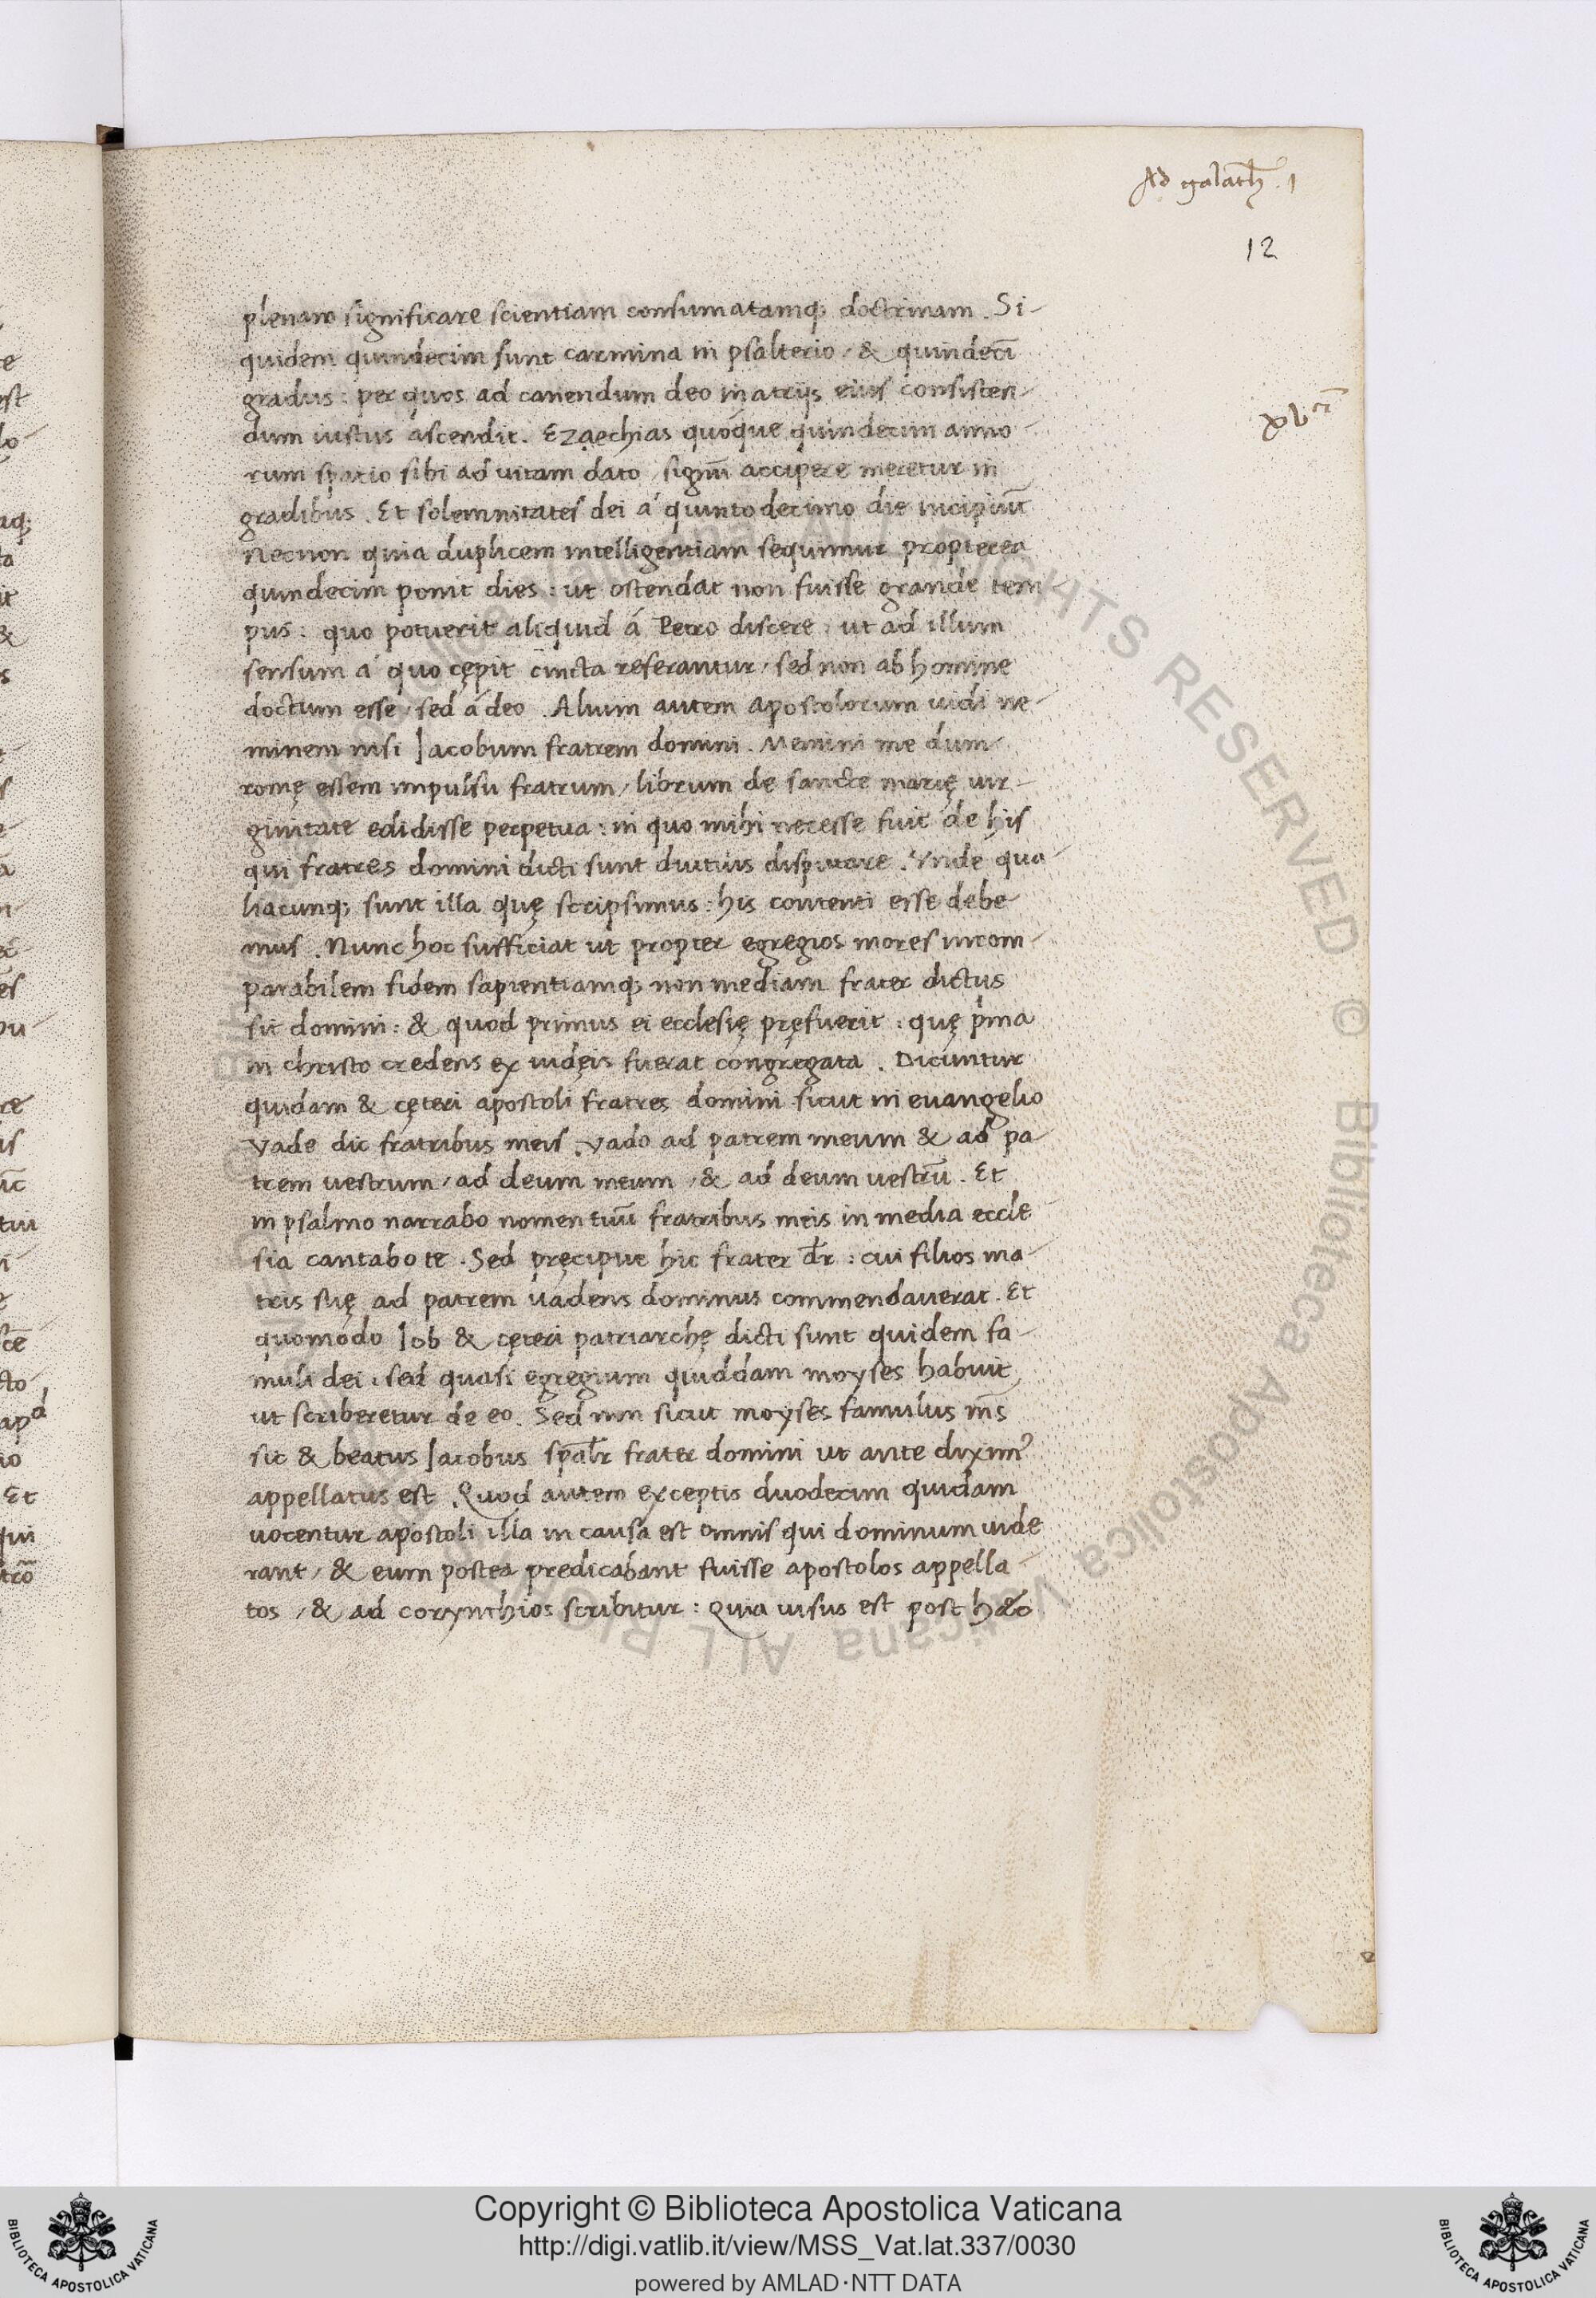 Ad galath. 1
12
plenam significare scientiam consumatamq; doctrinam. Si-
quidem quindecim sunt carmina in psalterio / & quindecī
gradus : per quos ad canendum deo in atrijs eius consisten-
xvcī
dum iustus ascendit. Ezęchias quoque quindecim anno-
rum spatio sibi ad vitam dato / signū accipere meretur in
gradibus. Et solemnitates dei á quinto decimo die incipiūt
Necnon quia duplicem intelligentiam sequimur propterea
quindecim ponit dies : ut ostendat non fuisse grande tem-
pus : quo potuerit aliquid á Petro discere / ut ad illum
sensum á quo cępit cūcta referantur / sed non ab homine
doctum esse / sed á deo. Alium autem apostolorum uidi ne-
minem nisi Jacobum fratrem domini. Memini me dum
romę essem impulsu fratrum / librum de sancte marię uir-
ginitate edidisse perpetua : in quo mihi necesse fuit de his
qui fratres domini dicti sunt diutius disputare. Vnde qua-
liacunq; sunt illa quę scripsimus : his contenti esse debe-
mus. Nunc hoc sufficiat ut propter egregios mores incom-
parabilem fidem sapientiamq; non mediam frater dictus
sit domini : & quod primus ei ecclesię pręfuerit : quę pma
in christo credens ex iudęis fuerat congregata. Dicuntur
quidam & cęteri apostoli fratres domini sicut in euangelio
Vade dic fratribus meis. vado ad patrem meum & ad pa-
trem uestrum / ad deum meum / & ad deum uestrū. Et
in psalmo narrabo nomen tuū fratribus meis in media eccle
sia cantabo te. Sed pręcipue hic frater dr̄ : cui filios ma-
tris suę ad patrem uadens dominus commendauerat. Et
quomodo Job & cęteri patriarchę dicti sunt quidem fa-
muli dei : sed quasi egregium quiddam moyses habuit
ut scriberetur de eo. Sed non sicut moyses famulus m̄s
sic & beatus Jacobus spālr frater domini ut ante diximꝰ
appellatus est. Quod autem exceptis duodecim quidam
uocentur apostoli illa in causa est omnis qui dominum uide
rant / & eum postea predicabant fuisse apostolos appella-
tos / & ad corynthios scribitur : Quia uisus est post hæc
Copyright © Biblioteca Apostolica Vaticana
http://digi.vatlib.it/view/MSS_Vat.lat.337/0030
powered by AMLAD·NTT DATA